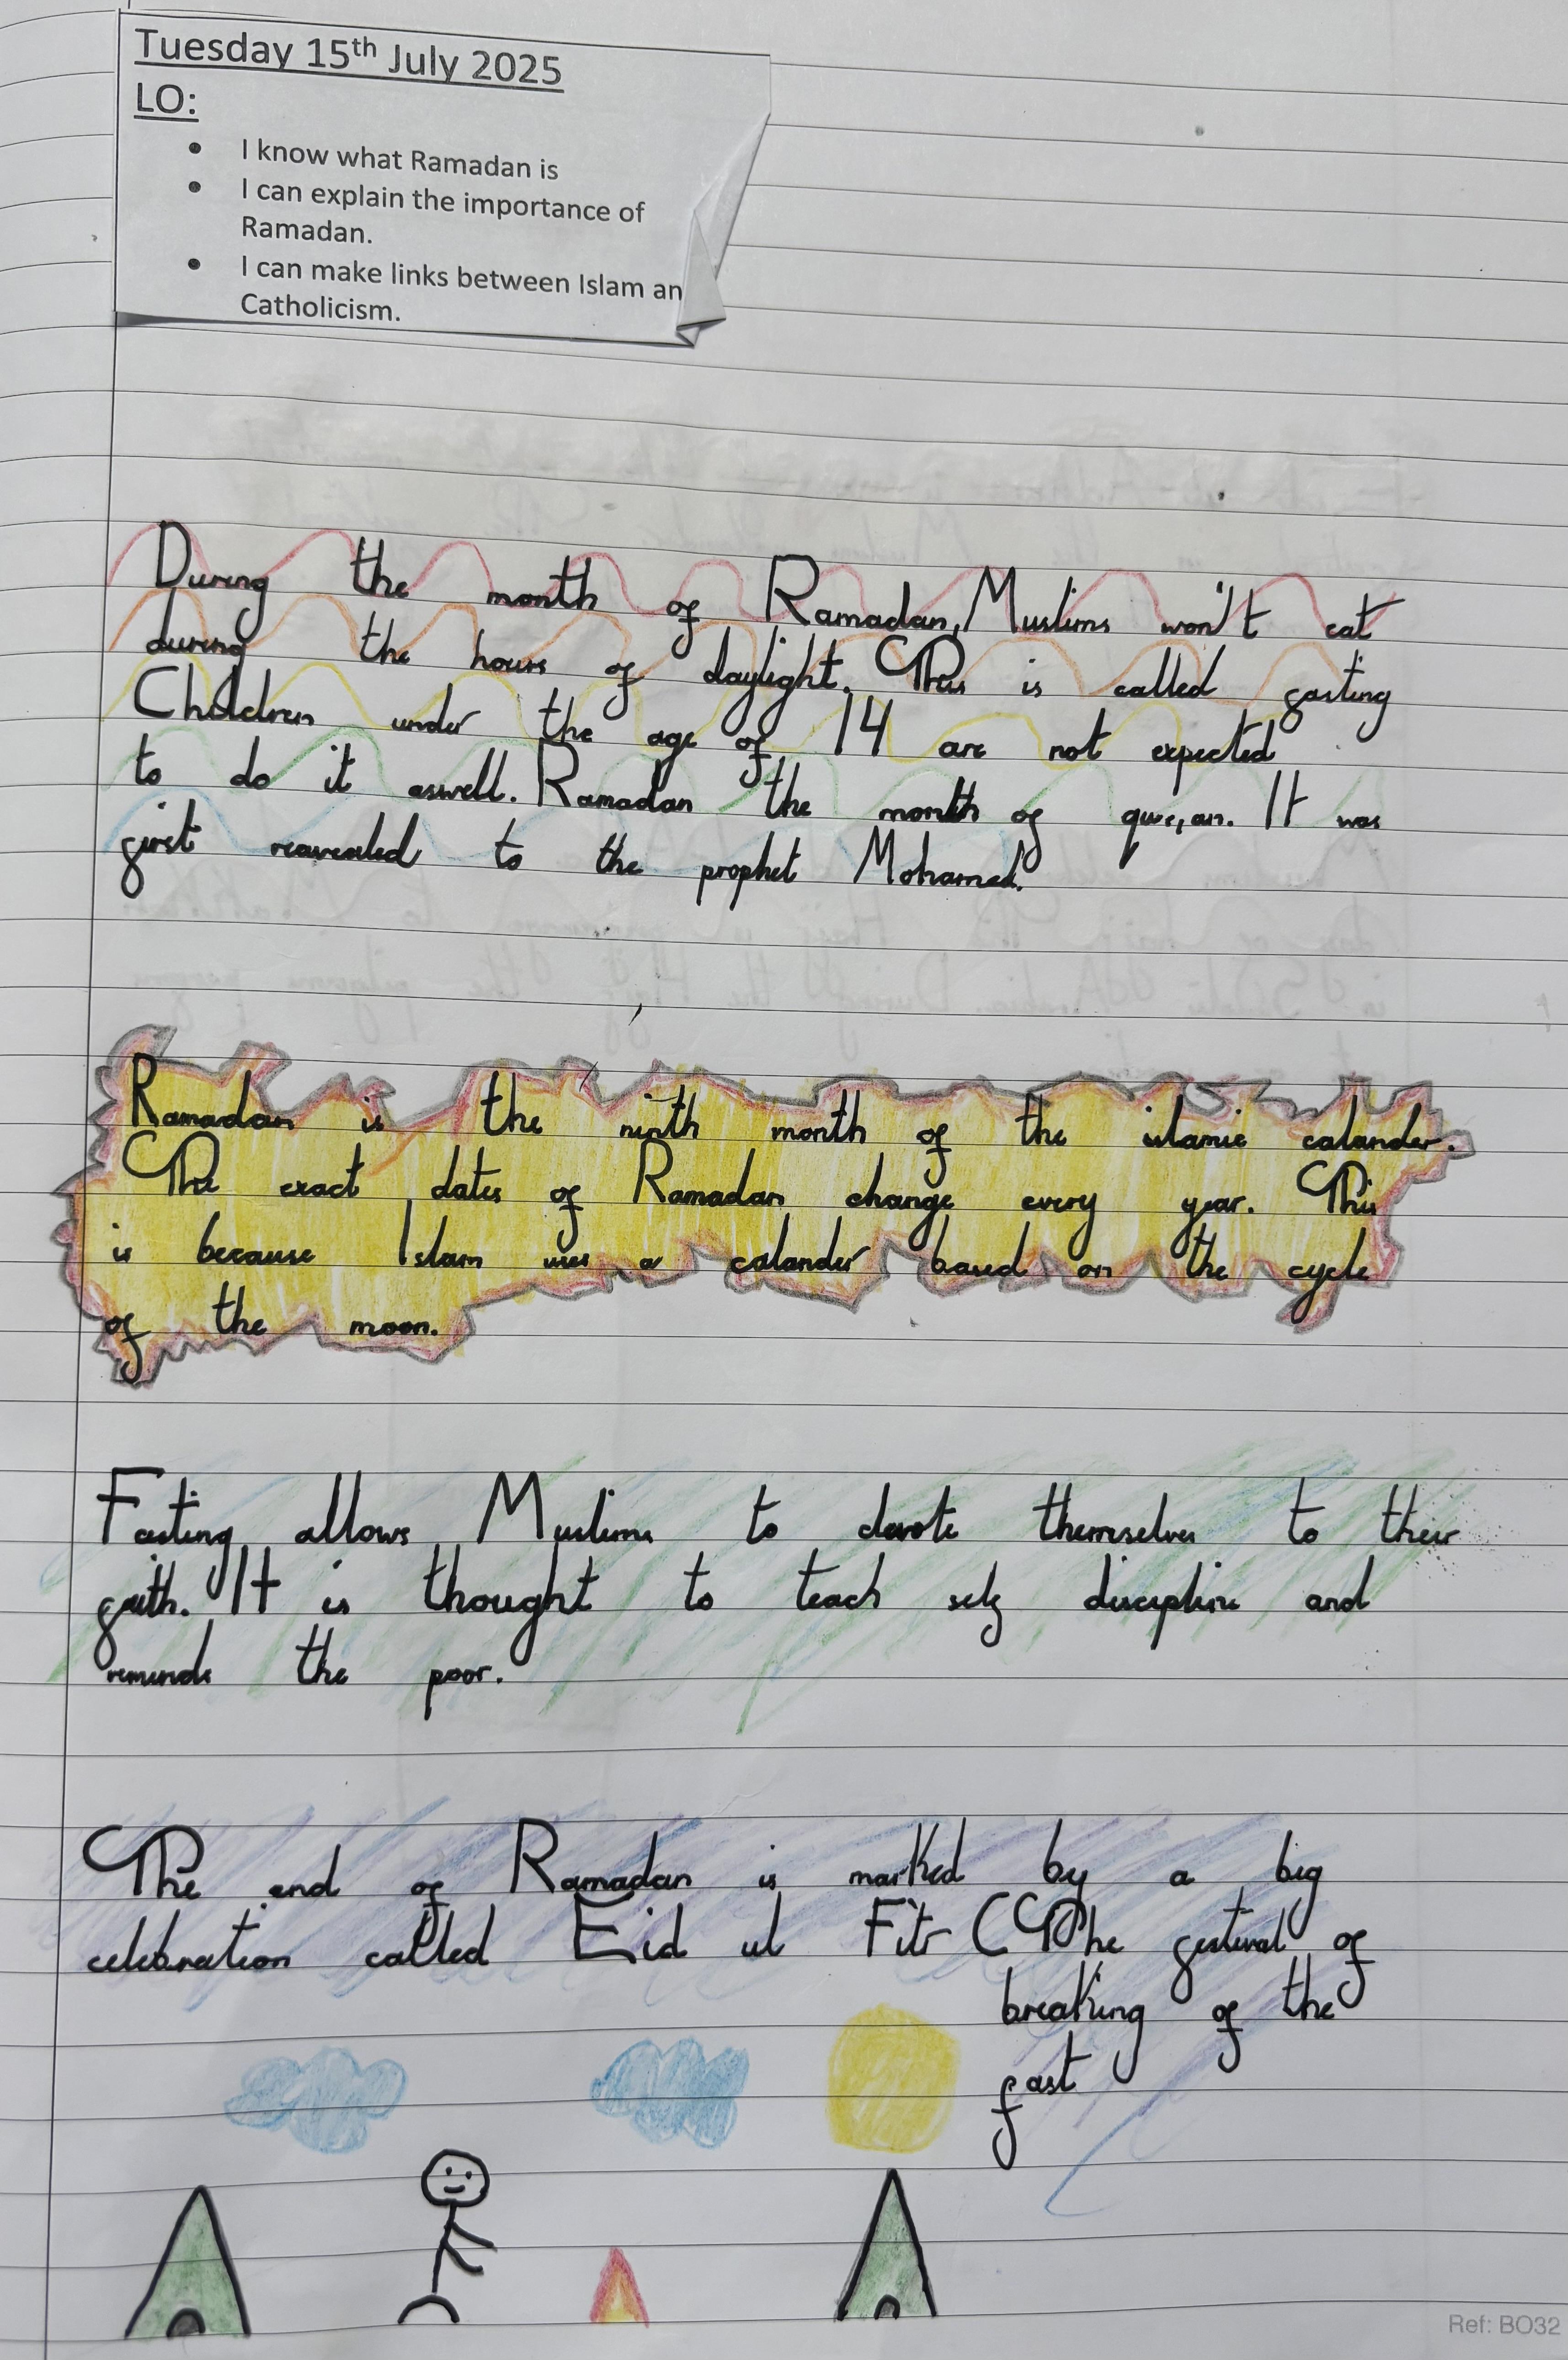 Tuesday 15th July 2025
LO:
• I know what Ramadan is
• I can explain the importance of
Ramadan.
• I can make links between Islam an
Catholicism.
During the month of Ramadan, Muslims won't eat
during the hours of daylight. This is called fasting
Children under the age of 14 are not expected
to do it aswell. Ramadan the month of It was
first reavealed to the prophet Mohamed.
Ramadan is the ninth month of the islamic calander.
The exact dates of Ramadan change every year. This
is because Islam uses a calander based on the cycle
of the moon.
Fasting allows Muslims to devote themselves to their
faith. It is thought to teach self discipline and
reminds the poor.
The end of Ramadan is marked by a big
celebration called Eid ul Fitr (The festival of
breaking of the
fast
Ref: BO32